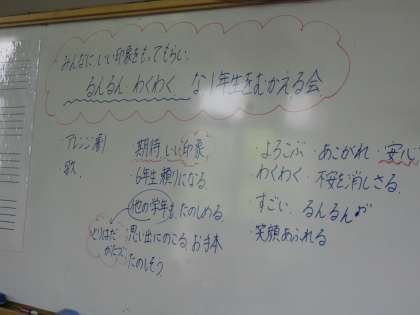 みんなに、いい印象をもってもらい、
るんるん わくわく な1年生をむかえる会
アレンジ劇
歌
・期待、いい印象
・6年生頼りになる。
・他の学年も、たのしめる
とりはだがたつ
・思い出にのこる、お手本
・たのしそう。
・よろこぶ ・あこがれ ・安心
・わくわく ・不安を消しさる。
・すごい ・るんるん♪
・笑顔あふれる